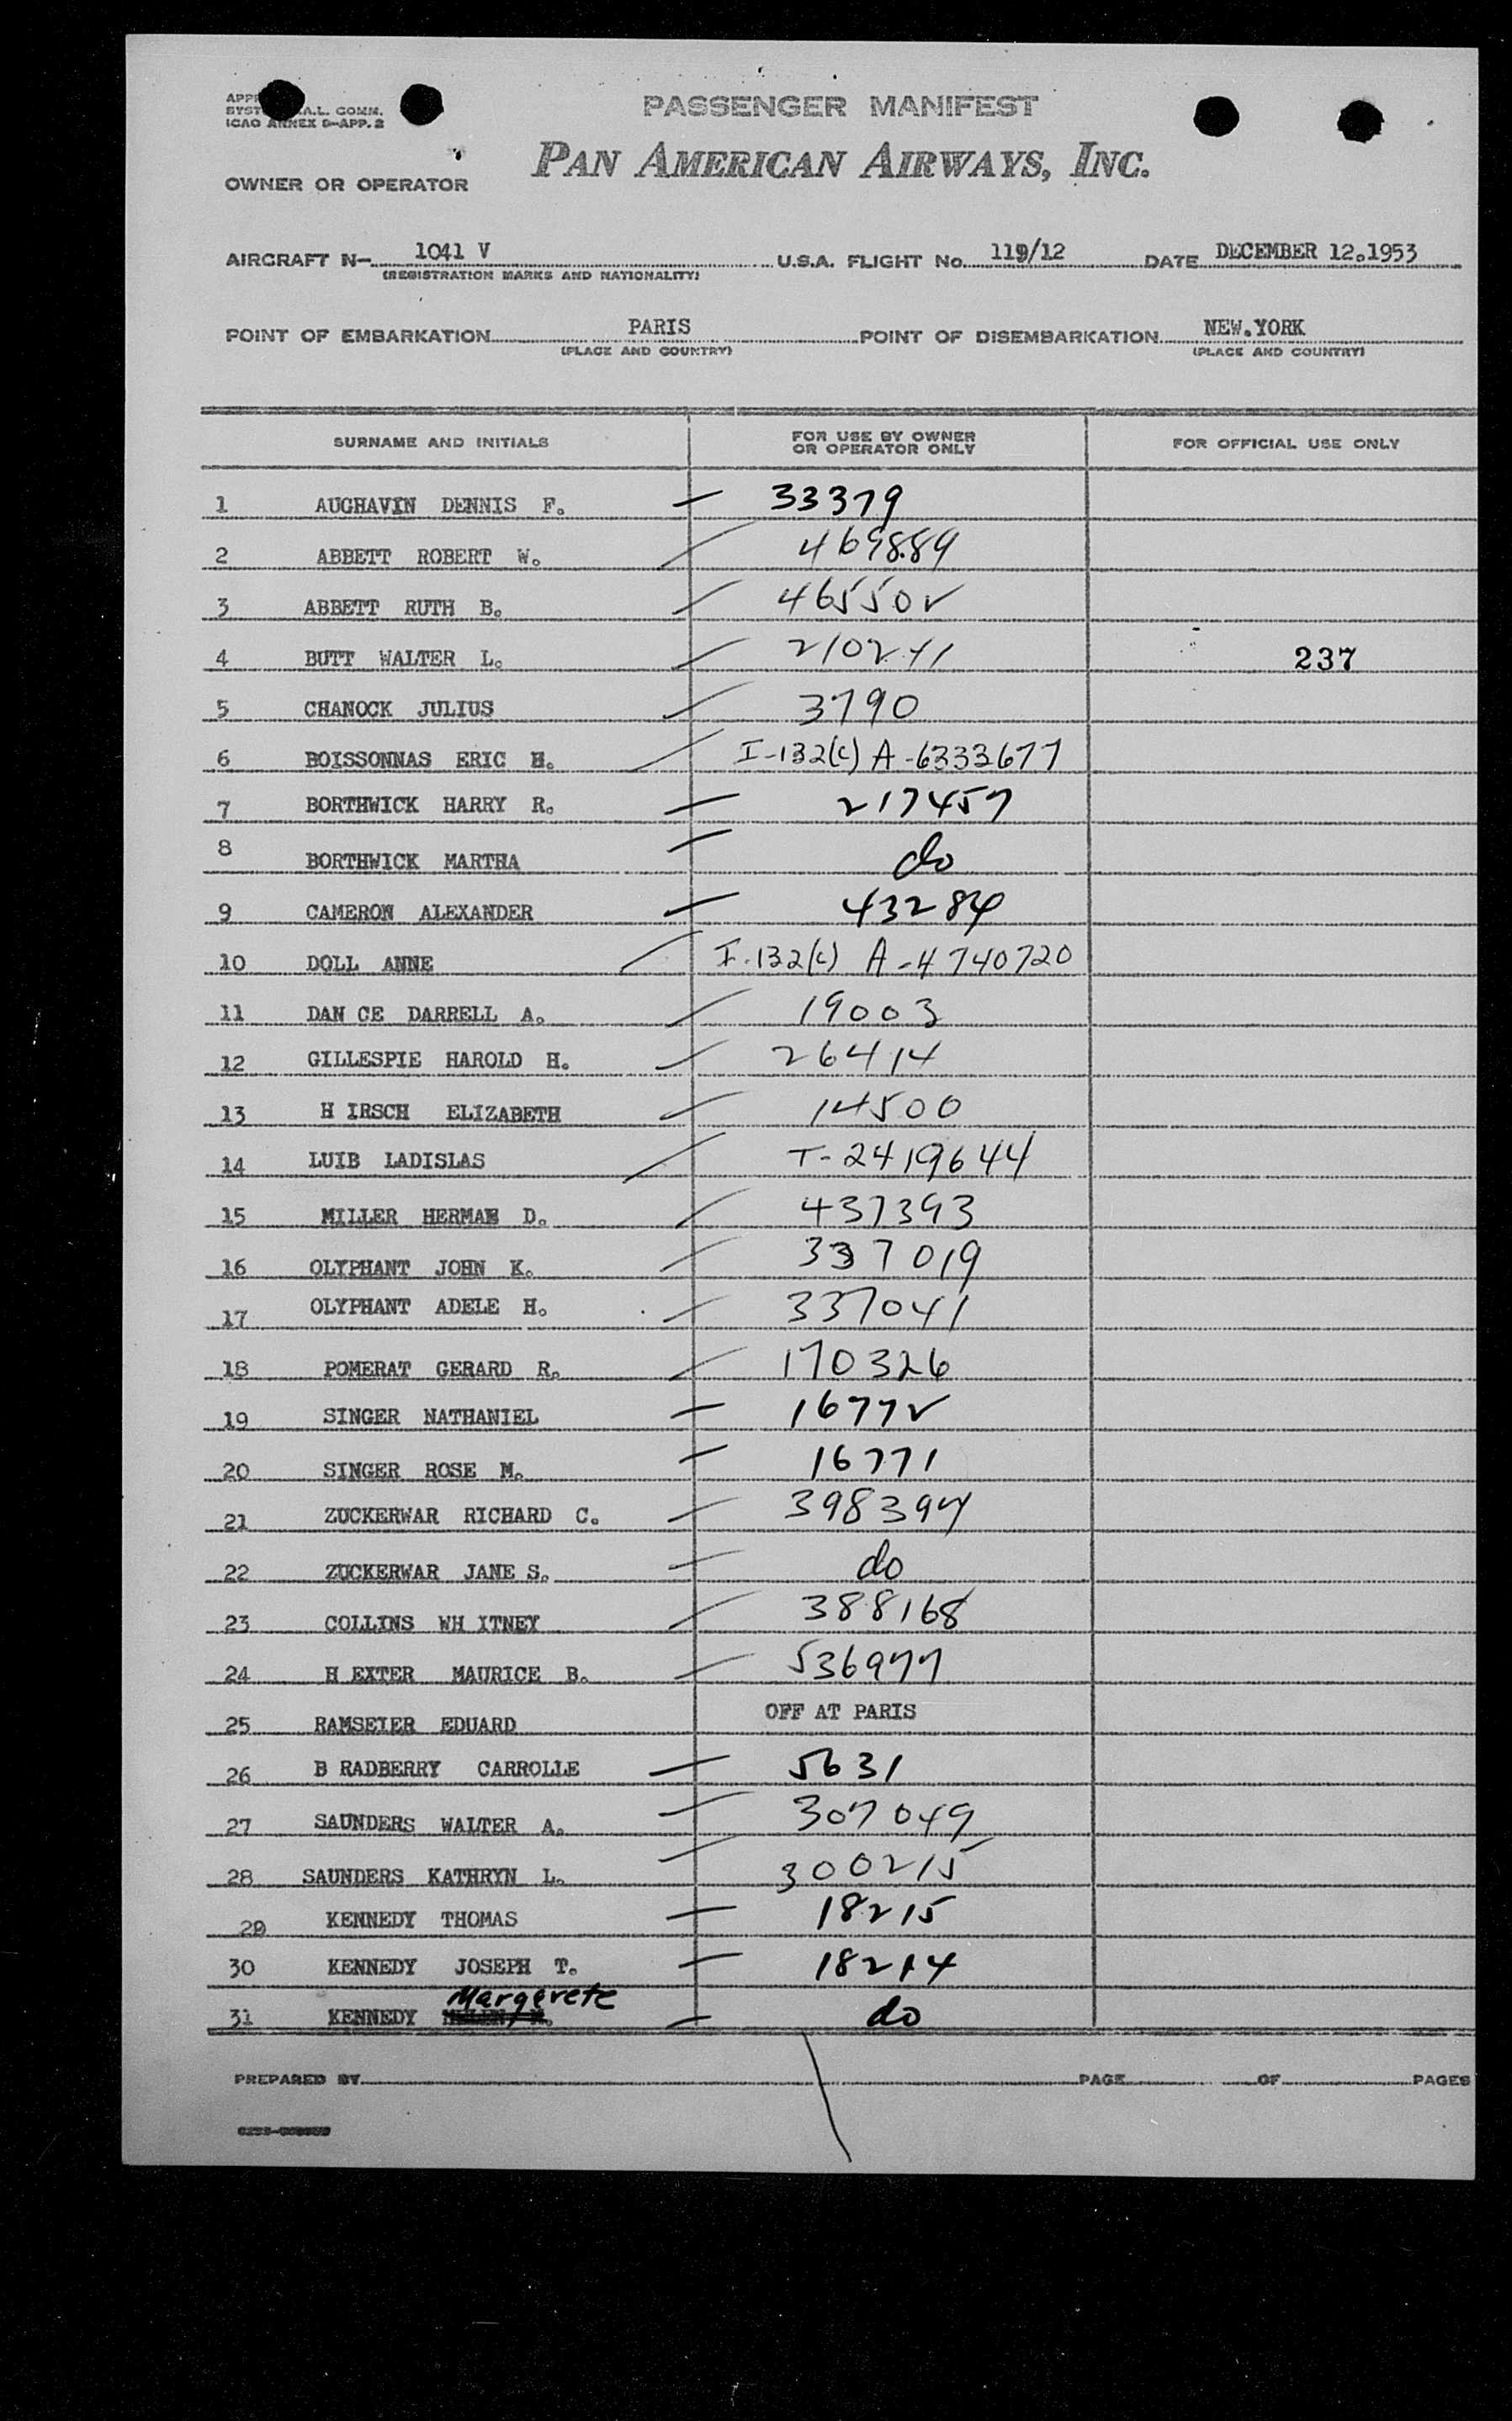 PASSENGER MANIFEST
ICAO ANNEX 9-APP. 2
PAN AMERICAN AIRWAYS, INC.
OWNER OR OPERATOR
AIRCRAFT N- 1041 V U.S.A. FLIGHT No. 119/12 DATE DECEMBER 12.1953
(REGISTRATION MARKS AND NATIONALITY)
POINT OF EMBARKATION PARIS POINT OF DISEMBARKATION NEW.YORK
(PLACE AND COUNTRY) (PLACE AND COUNTRY)
SURNAME AND INITIALS FOR USE BY OWNER OR OPERATOR ONLY FOR OFFICIAL USE ONLY
1 AUGHAVIN DENNIS F. 33379
2 ABBETT ROBERT W. 469889
3 ABBETT RUTH B. 465502
4 BUTT WALTER L. 210241 237
5 CHANOCK JULIUS 3790
6 BOISSONNAS ERIC H. I-132(c) A-6333677
7 BORTHWICK HARRY R. 217457
8 BORTHWICK MARTHA do
9 CAMERON ALEXANDER 43284
10 DOLL ANNE I-132(c) A-4740720
11 DAN CE DARRELL A. 19003
12 GILLESPIE HAROLD H. 26414
13 H IRSCH ELIZABETH 14500
14 LUIB LADISLAS T-2419644
15 MILLER HERMAN D. 437393
16 OLYPHANT JOHN K. 337019
17 OLYPHANT ADELE H. 337041
18 POMERAT GERARD R. 170326
19 SINGER NATHANIEL 16772
20 SINGER ROSE M. 16771
21 ZUCKERWAR RICHARD C. 398394
22 ZUCKERWAR JANE S. do
23 COLLINS WH ITNEY 388168
24 H EXTER MAURICE B. 536977
25 RAMSEIER EDUARD OFF AT PARIS
26 B RADBERRY CARROLLE 5631
27 SAUNDERS WALTER A. 307049
28 SAUNDERS KATHRYN L. 300215
29 KENNEDY THOMAS 18215
30 KENNEDY JOSEPH T. 18214
31 KENNEDY Margarete do
PREPARED BY PAGE OF PAGES